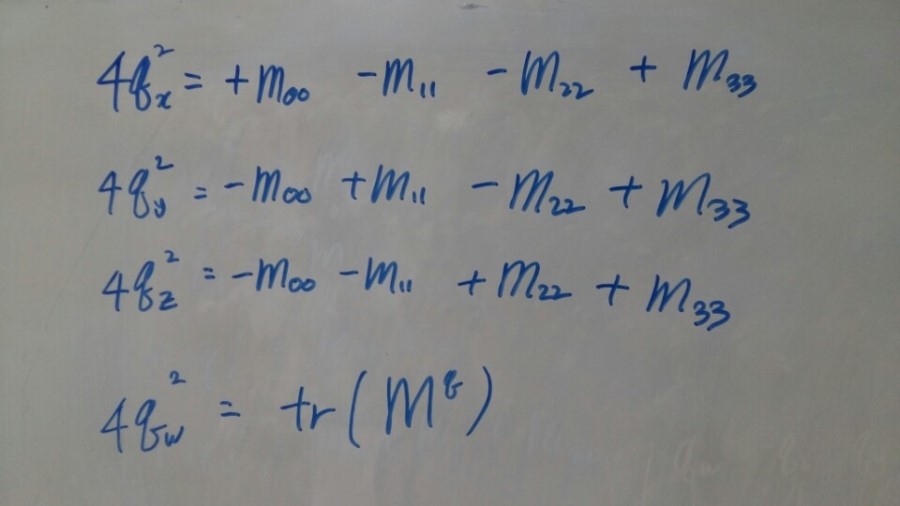 4q_x^2 = +m_00 -m_11 -m_22 + m_33
4q_y^2 = -m_00 +m_11 -m_22 + m_33
4q_z^2 = -m_00 -m_11 +m_22 + m_33
4q_w^2 = tr(M^q)